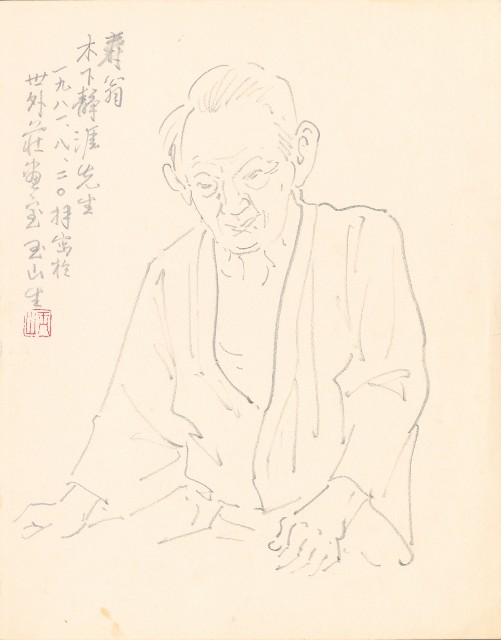 壽翁
木下靜涯先生
一九八一、八、二〇拝寫於
世外莊画室 玉山生
玉山